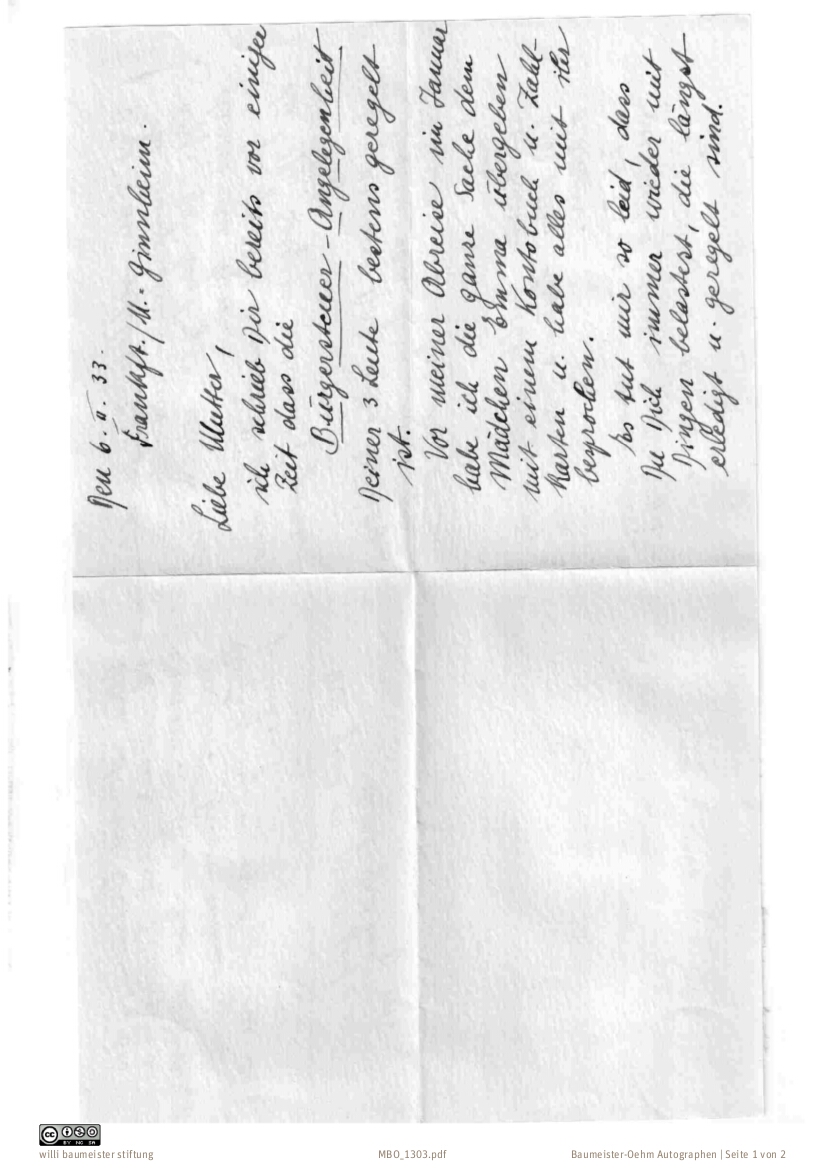 Den 6. II. 33.
Frankft./M.-Ginnheim.
Liebe Mutter,
ich schrieb Dir bereits vor einiger
Zeit dass die
Bürgersteuer-Angelegenheit
Deiner 3 Leute bestens geregelt
ist.
Vor meiner Abreise im Januar
habe ich die ganze Sache dem
Mädchen Emma übergeben
mit einem Kontobuch u. Zahl-
karten u. habe alles mit ihr
besprochen.
Es tut mir so leid, dass
Du Dich immer wieder mit
Dingen belastest, die längst
erledigt u. geregelt sind.
CC BY NC SA
willi baumeister stiftung
MBO_1303.pdf
Baumeister-Oehm Autographen | Seite 1 von 2